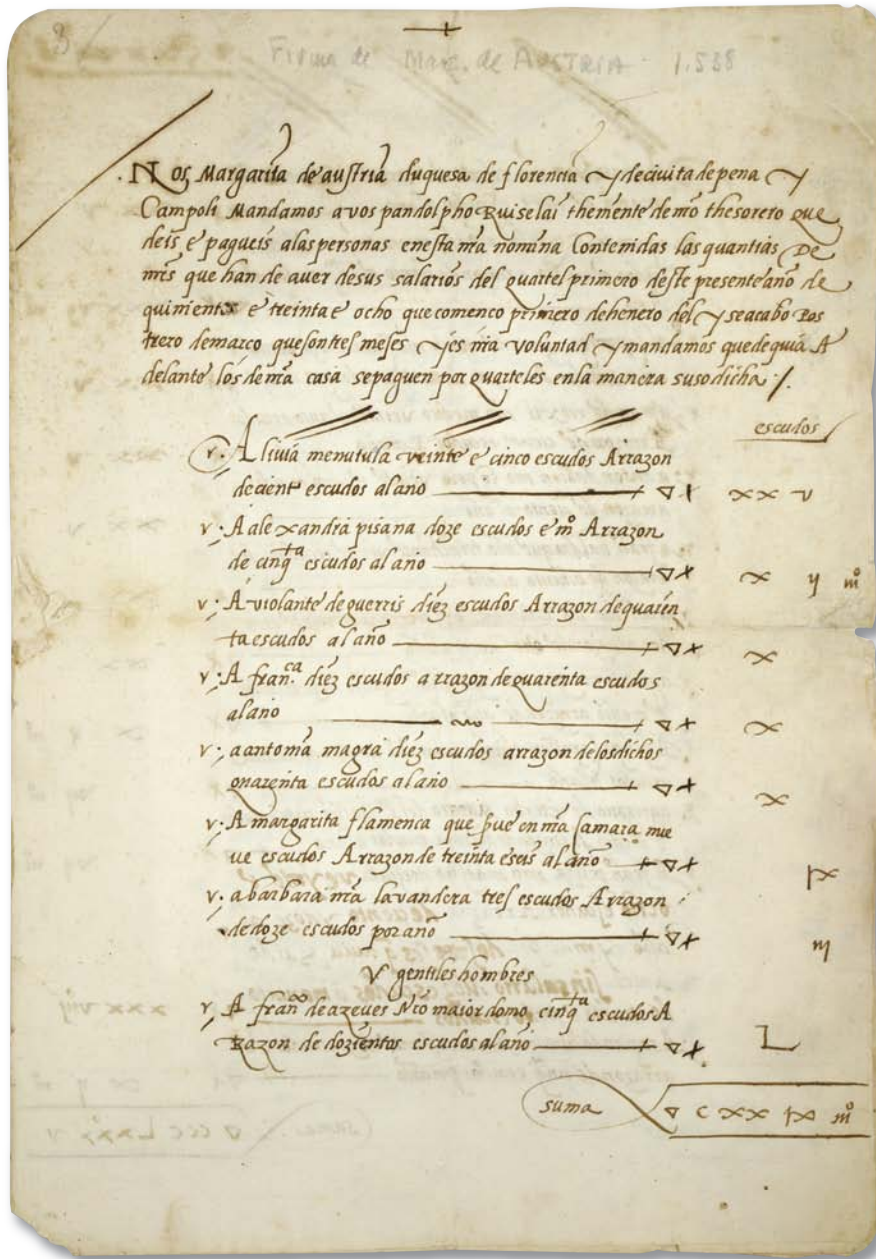 3
Firma de Marg. de AUSTRIA 1.538
Nos Margarita de austria duquesa de florencia y decivita de pena y
Campoli Mandamos avos pandolpho Ruiselai theniente de nro thesorero que
deis e pagueis alas personas enesta nra nomina Contenidas las quantias De
mrs que han de aver desus salarios del quartel primero deste presente año de
quinientos e treinta e ocho que comenco primero dehenero del y seacabo Pos
trero demarco queson tres meses y es nra voluntad y mandamos que de quia A
delante los de nra casa sepaguen por quarteles enla manera susodicha /.
escudos
v. A livia menutula veinte e cinco escudos Arrazon
decient escudos al año xx v
v. A alexandra pisana doze escudos e mº Arrazon
de cinqta escudos al año x ij mº
v. A violante de guerris diez escudos Arrazon de quaren
ta escudos al año x
v. A franca diez escudos a rrazon de quarenta escudos
al año x
v. a antonia magra diez escudos arrazon delos dichos
quarenta escudos al año x
v. A margarita flamenca que sirve en nra camara nue
ve escudos Arrazon de treinta e seis al año ix
v. a barbara nra lavandera tres escudos Arrazon
de doze escudos por año iij
V gentiles hombres
v. A franco de azeves Nro maior domo cinqta escudos A
Razon de dozientos escudos al año L
suma C xx ix mº